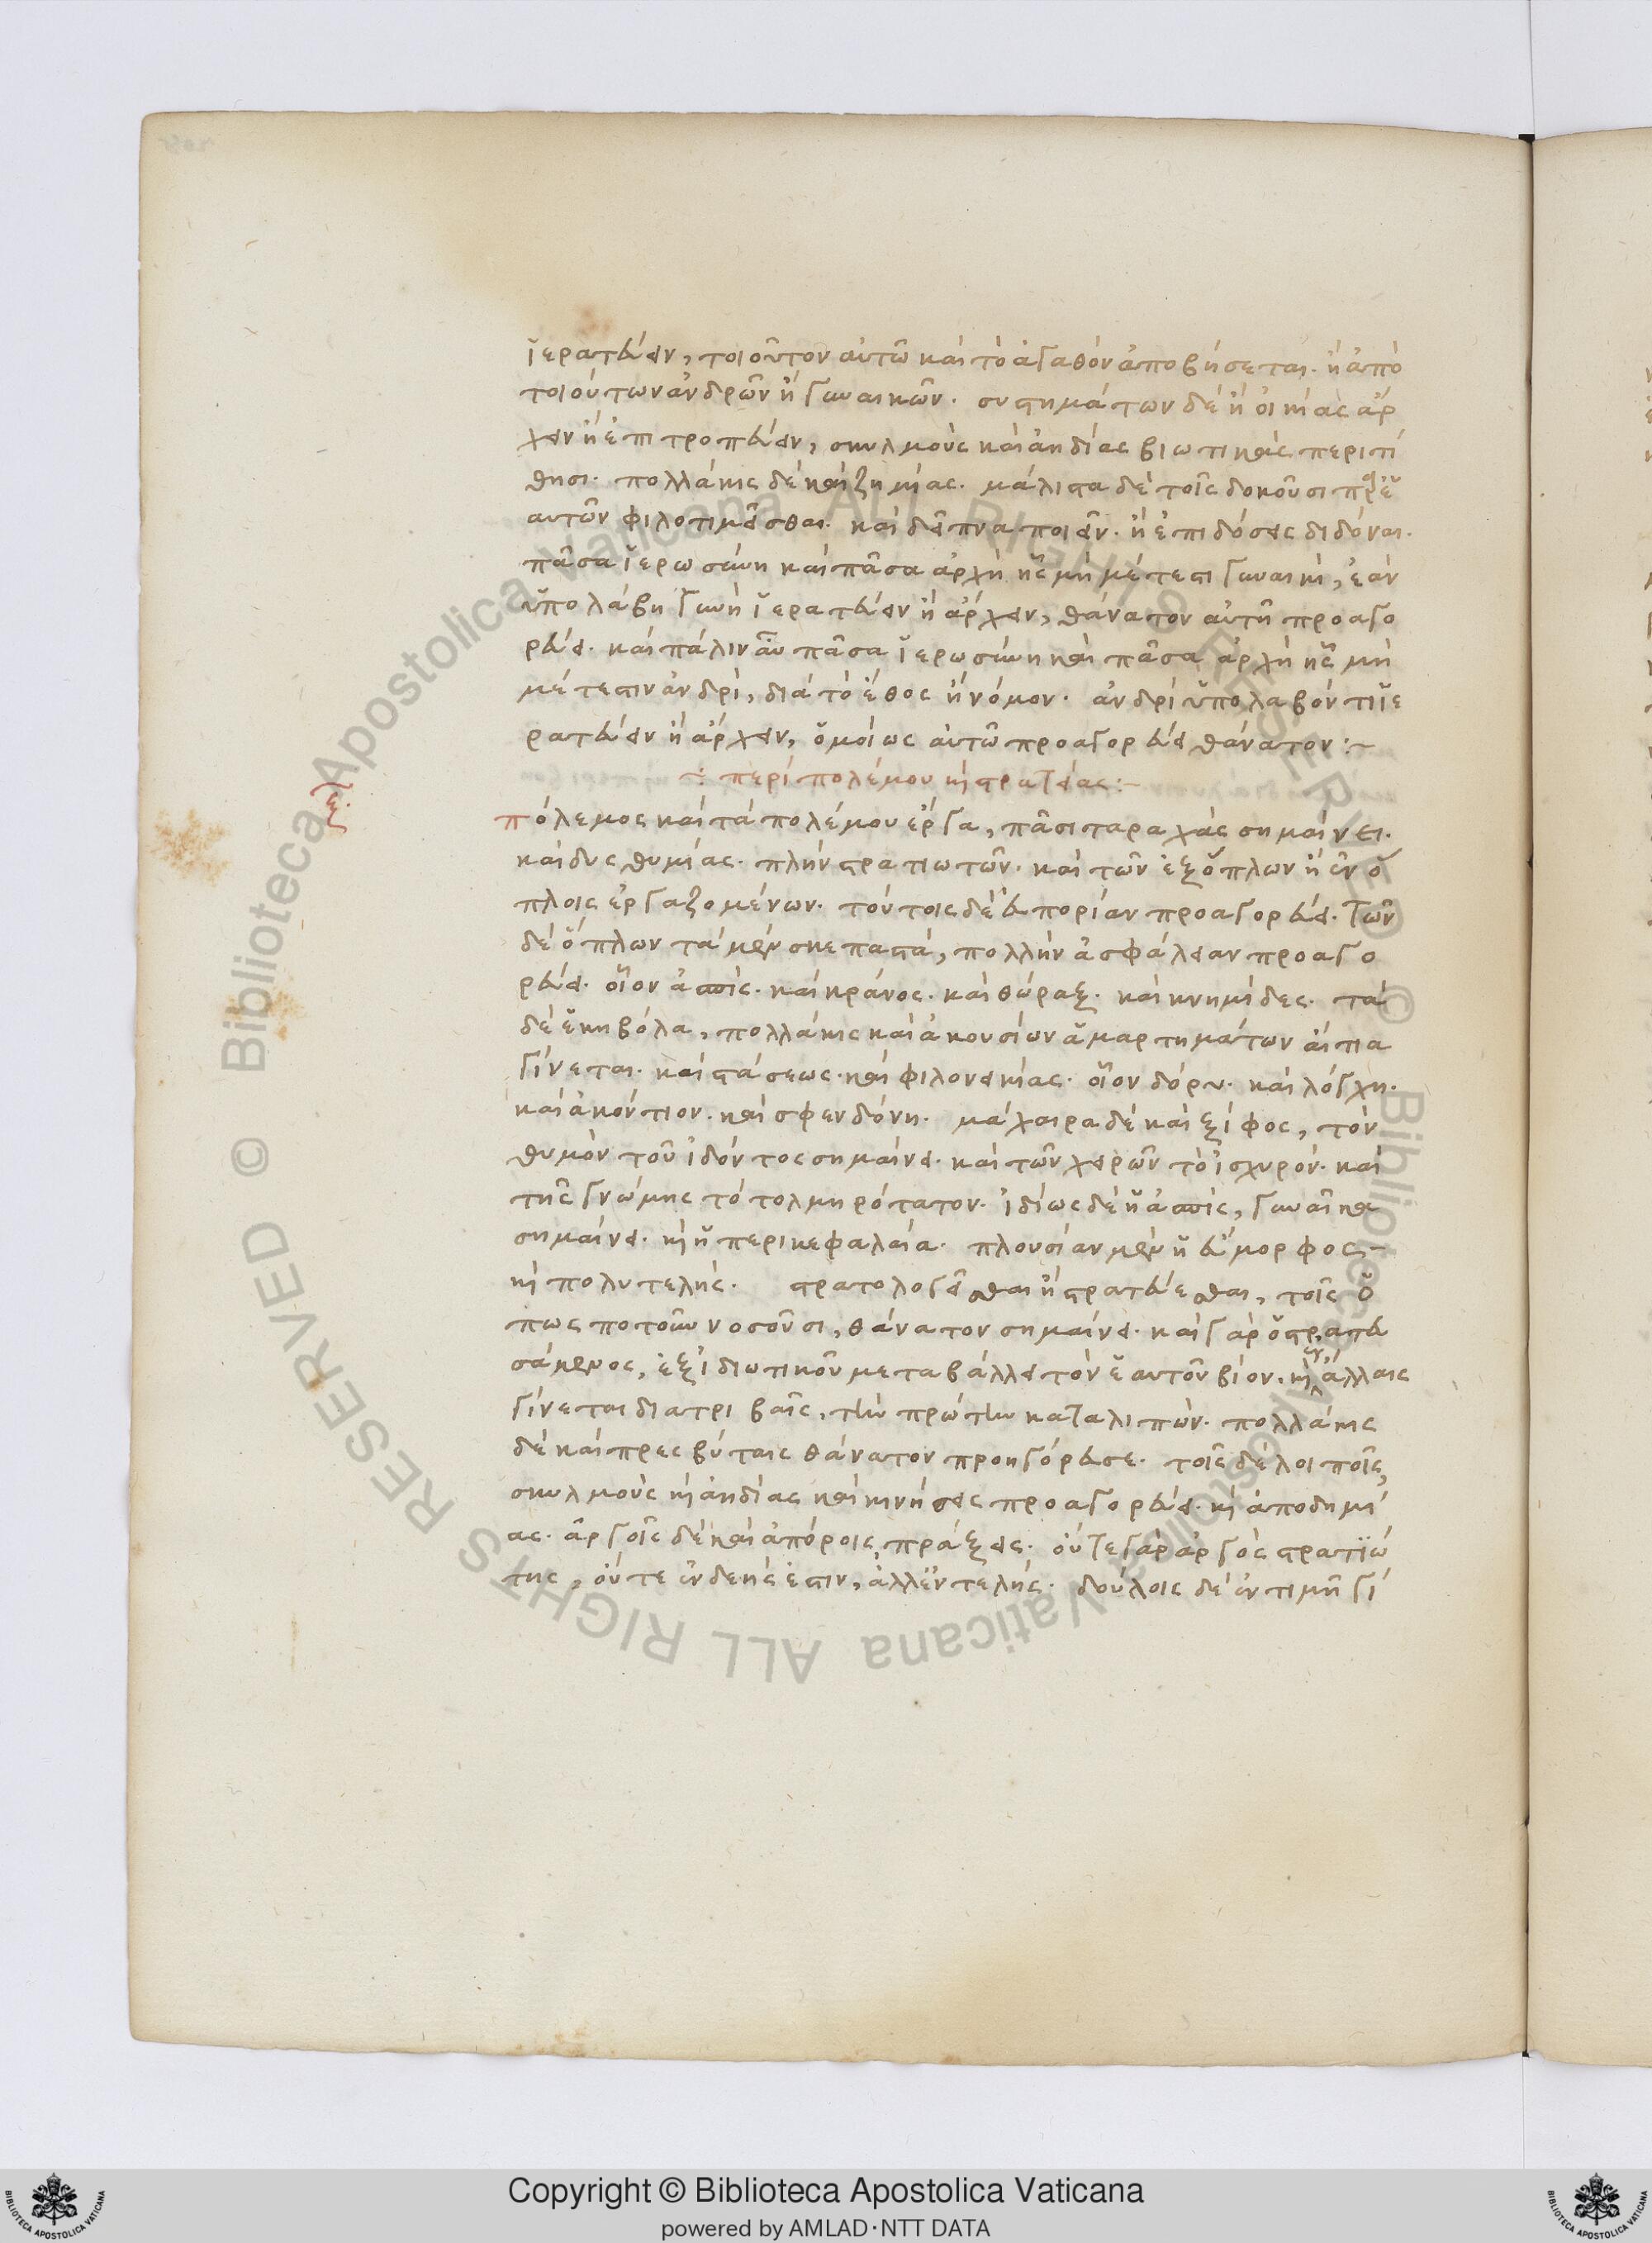 ἱερατεύειν, τοιοῦτον αὐτῶ καὶ τὸ ἀγαθὸν ἀποβήσεται. ἢ ἀπὸ
τοιούτων ἀνδρῶν ἢ γυναικῶν. συστημάτων δὲ ἢ οἰκίας ἄρ
χειν ἢ ἐπιτροπεύειν, σκυλμοὺς καὶ ἀηδίας βιωτικὰς περιτί
θησι. πολλάκις δὲ καὶ ζημίας. μάλιστα δὲ τοῖς δοκοῦσι παρ' ἑ
αυτῶν φιλοτιμεῖσθαι. καὶ δεῖπνα ποιεῖν. ἢ ἐπιδόσεις διδόναι.
πᾶσα ἱερωσύνη καὶ πᾶσα ἀρχὴ ἧς μὴ μέτεστι γυναικὶ, ἐὰν
ὑπολάβη γυνὴ ἱερατεύειν ἢ ἄρχειν, θάνατον αὐτῆ προαγο
ρεύει. καὶ πάλιν αὖ πᾶσα ἱερωσύνη καὶ πᾶσα ἀρχὴ ἧς μὴ
μέτεστιν ἀνδρὶ, διὰ τὸ ἔθος ἢ νόμον. ἀνδρὶ ὑπολαβόντι ἱε
ρατεύειν ἢ ἄρχειν, ὁμοίως αὐτῶ προαγορεύει θάνατον :~
∻ περὶ πολέμου κὶ στρατείας :~
ξ.
πόλεμος καὶ τὰ πολέμου ἔργα, πᾶσι ταραχὰς σημαίνει.
καὶ δυςθυμίας. πλὴν στρατιωτῶν. καὶ τῶν ἐξ ὅπλων ἢ ἐν ὅ
πλοις ἐργαζομένων. τούτοις δὲ εὐπορίαν προαγορεύει. Τῶν
δὲ ὅπλων τὰ μὲν σκεπαστὰ, πολλὴν ἀσφάλειαν προαγο
ρεύει. οἷον ἀσπίς. καὶ κράνος. καὶ θώραξ. καὶ κνημίδες. τὰ
δὲ ἑκηβόλα, πολλάκις καὶ ἀκουσίων ἁμαρτημάτων αἴτια
γίνεται. καὶ στάσεως. καὶ φιλονεικίας. οἷον δόρυ. καὶ λόγχη.
καὶ ἀκόντιον. καὶ σφενδόνη. μάχαιρα δὲ καὶ ξίφος, τὸν
θυμὸν τοῦ ἰδόντος σημαίνει. καὶ τῶν χειρῶν τὸ ἰσχυρόν. καὶ
τῆς γνώμης τὸ τολμηρότατον. ἰδίως δὲ ἡ ἀσπὶς, γυναῖκα
σημαίνει. κὶ ἡ περικεφαλαία. πλουσίαν μὲν ἡ εὔμορφος
κὶ πολυτελής. στρατολογεῖσθαι ἢ στρατεύεσθαι, τοῖς ὅ
πως ποτοῦν νοσοῦσι, θάνατον σημαίνει. καὶ γὰρ ὁ στρατευ
σάμενος, ἐξ ἰδιωτικοῦ μεταβάλλει τὸν ἑαυτοῦ βίον. κὶ ἐν ἄλλαις
γίνεται διατριβαῖς, τὴν πρώτην καταλιπών. πολλάκις
δὲ καὶ πρεσβύταις θάνατον προηγόρευσε. τοῖς δὲ λοιποῖς,
σκυλμοὺς κὶ ἀηδίας καὶ κινήσεις προαγορεύει. κὶ ἀποδημί
ας. ἀργοῖς δὲ καὶ ἀπόροις, πράξεις. οὔτε γὰρ ἀργὸς στρατιώ
της, οὔτε ἐνδεής ἐστιν, ἀλλ' ἐντελής. δούλοις δὲ ἐν τιμῆ γί
Copyright © Biblioteca Apostolica Vaticana
powered by AMLAD·NTT DATA
© Biblioteca Apostolica Vaticana ALL RIGHTS RESERVED
© Biblioteca Apostolica Vaticana ALL RIGHTS RESERVED